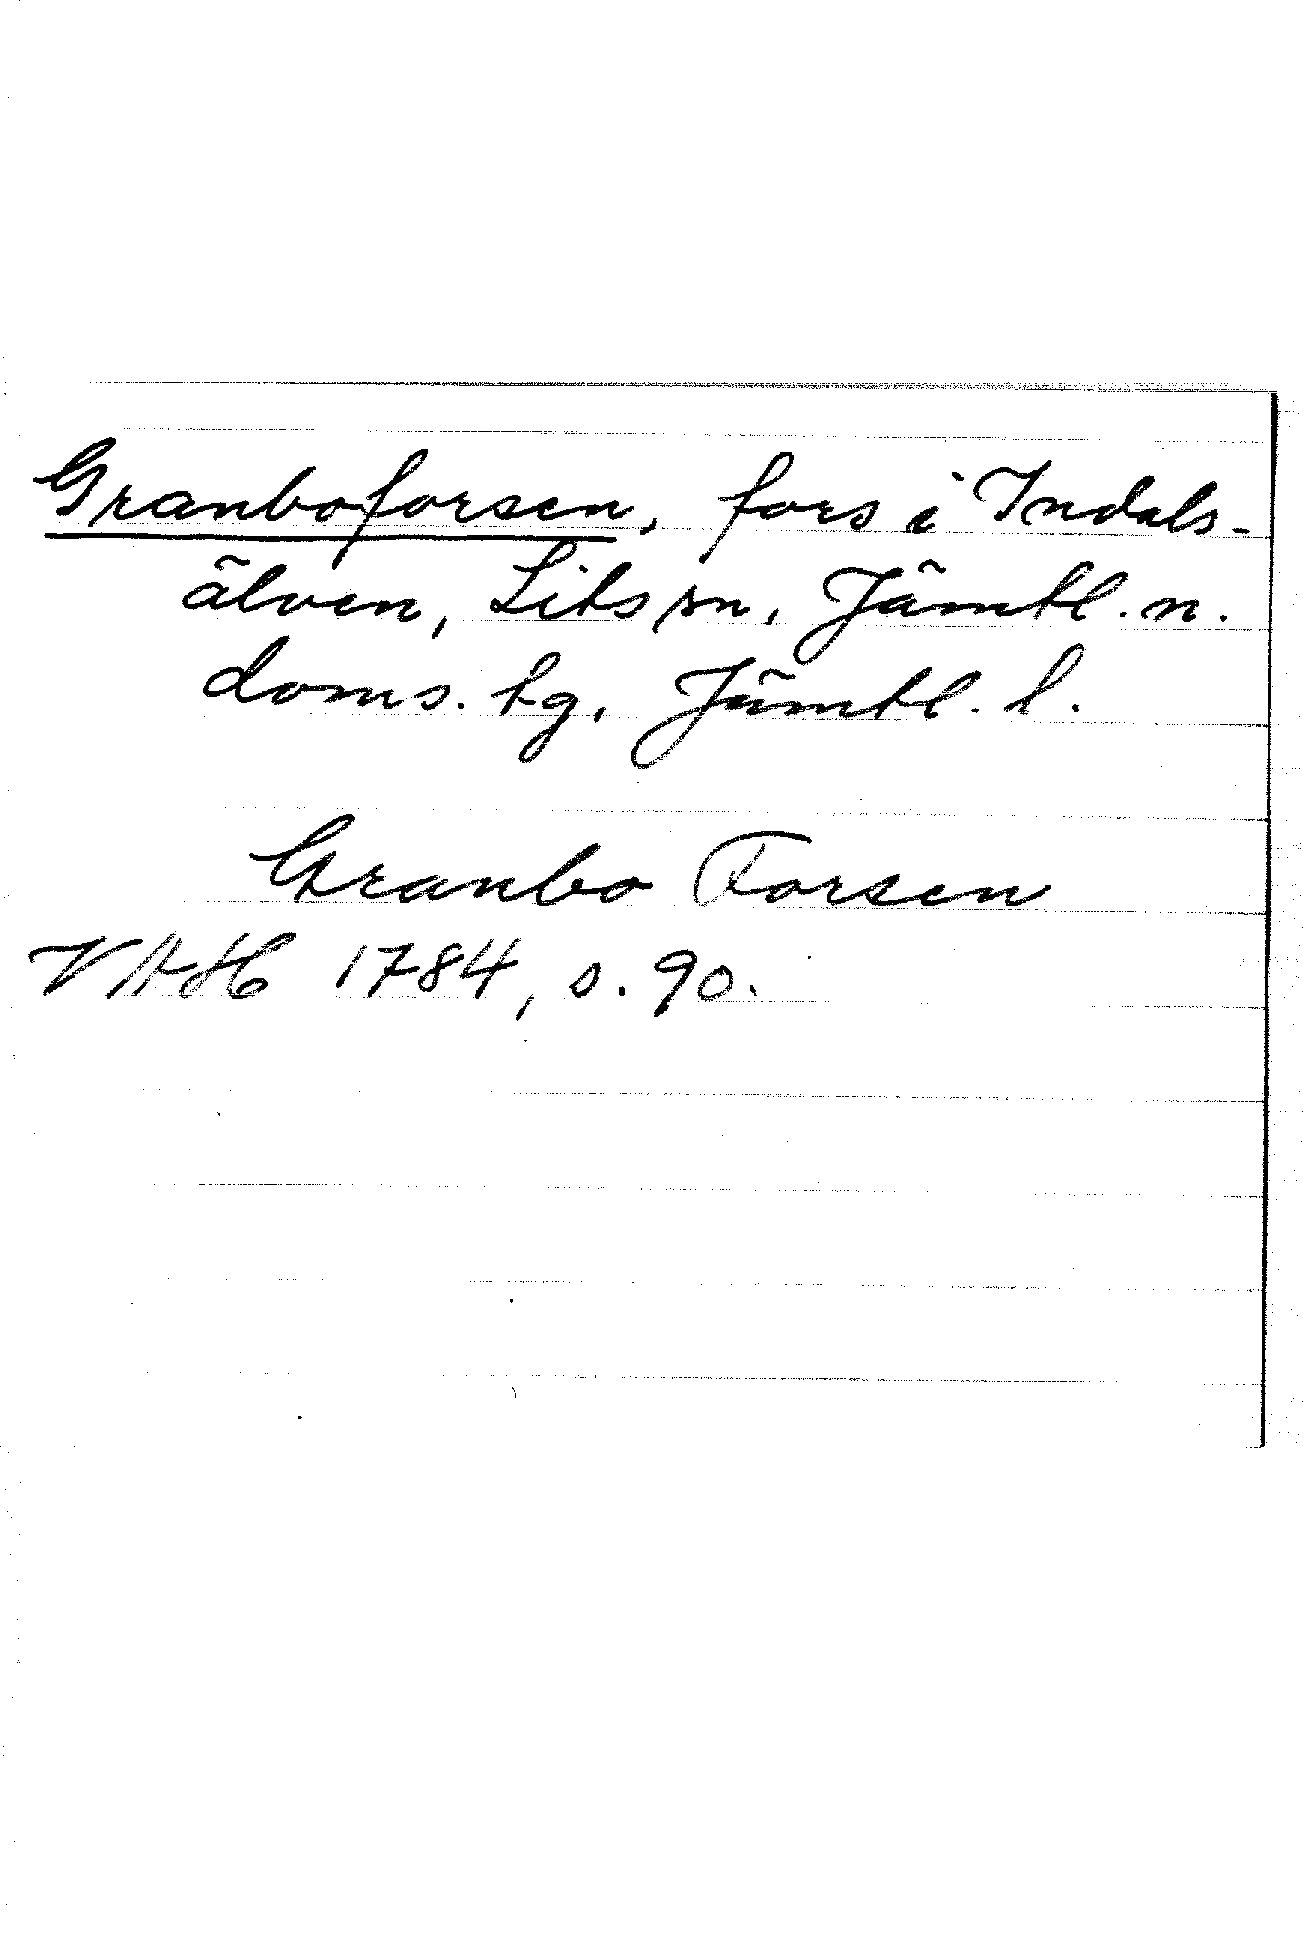 Granboforsen, fors i Indals-
älven, Lits sn, Jämtl. n.
doms. tg, Jämtl. l.
Granbo Forsen
VAH 1784, s. 90.